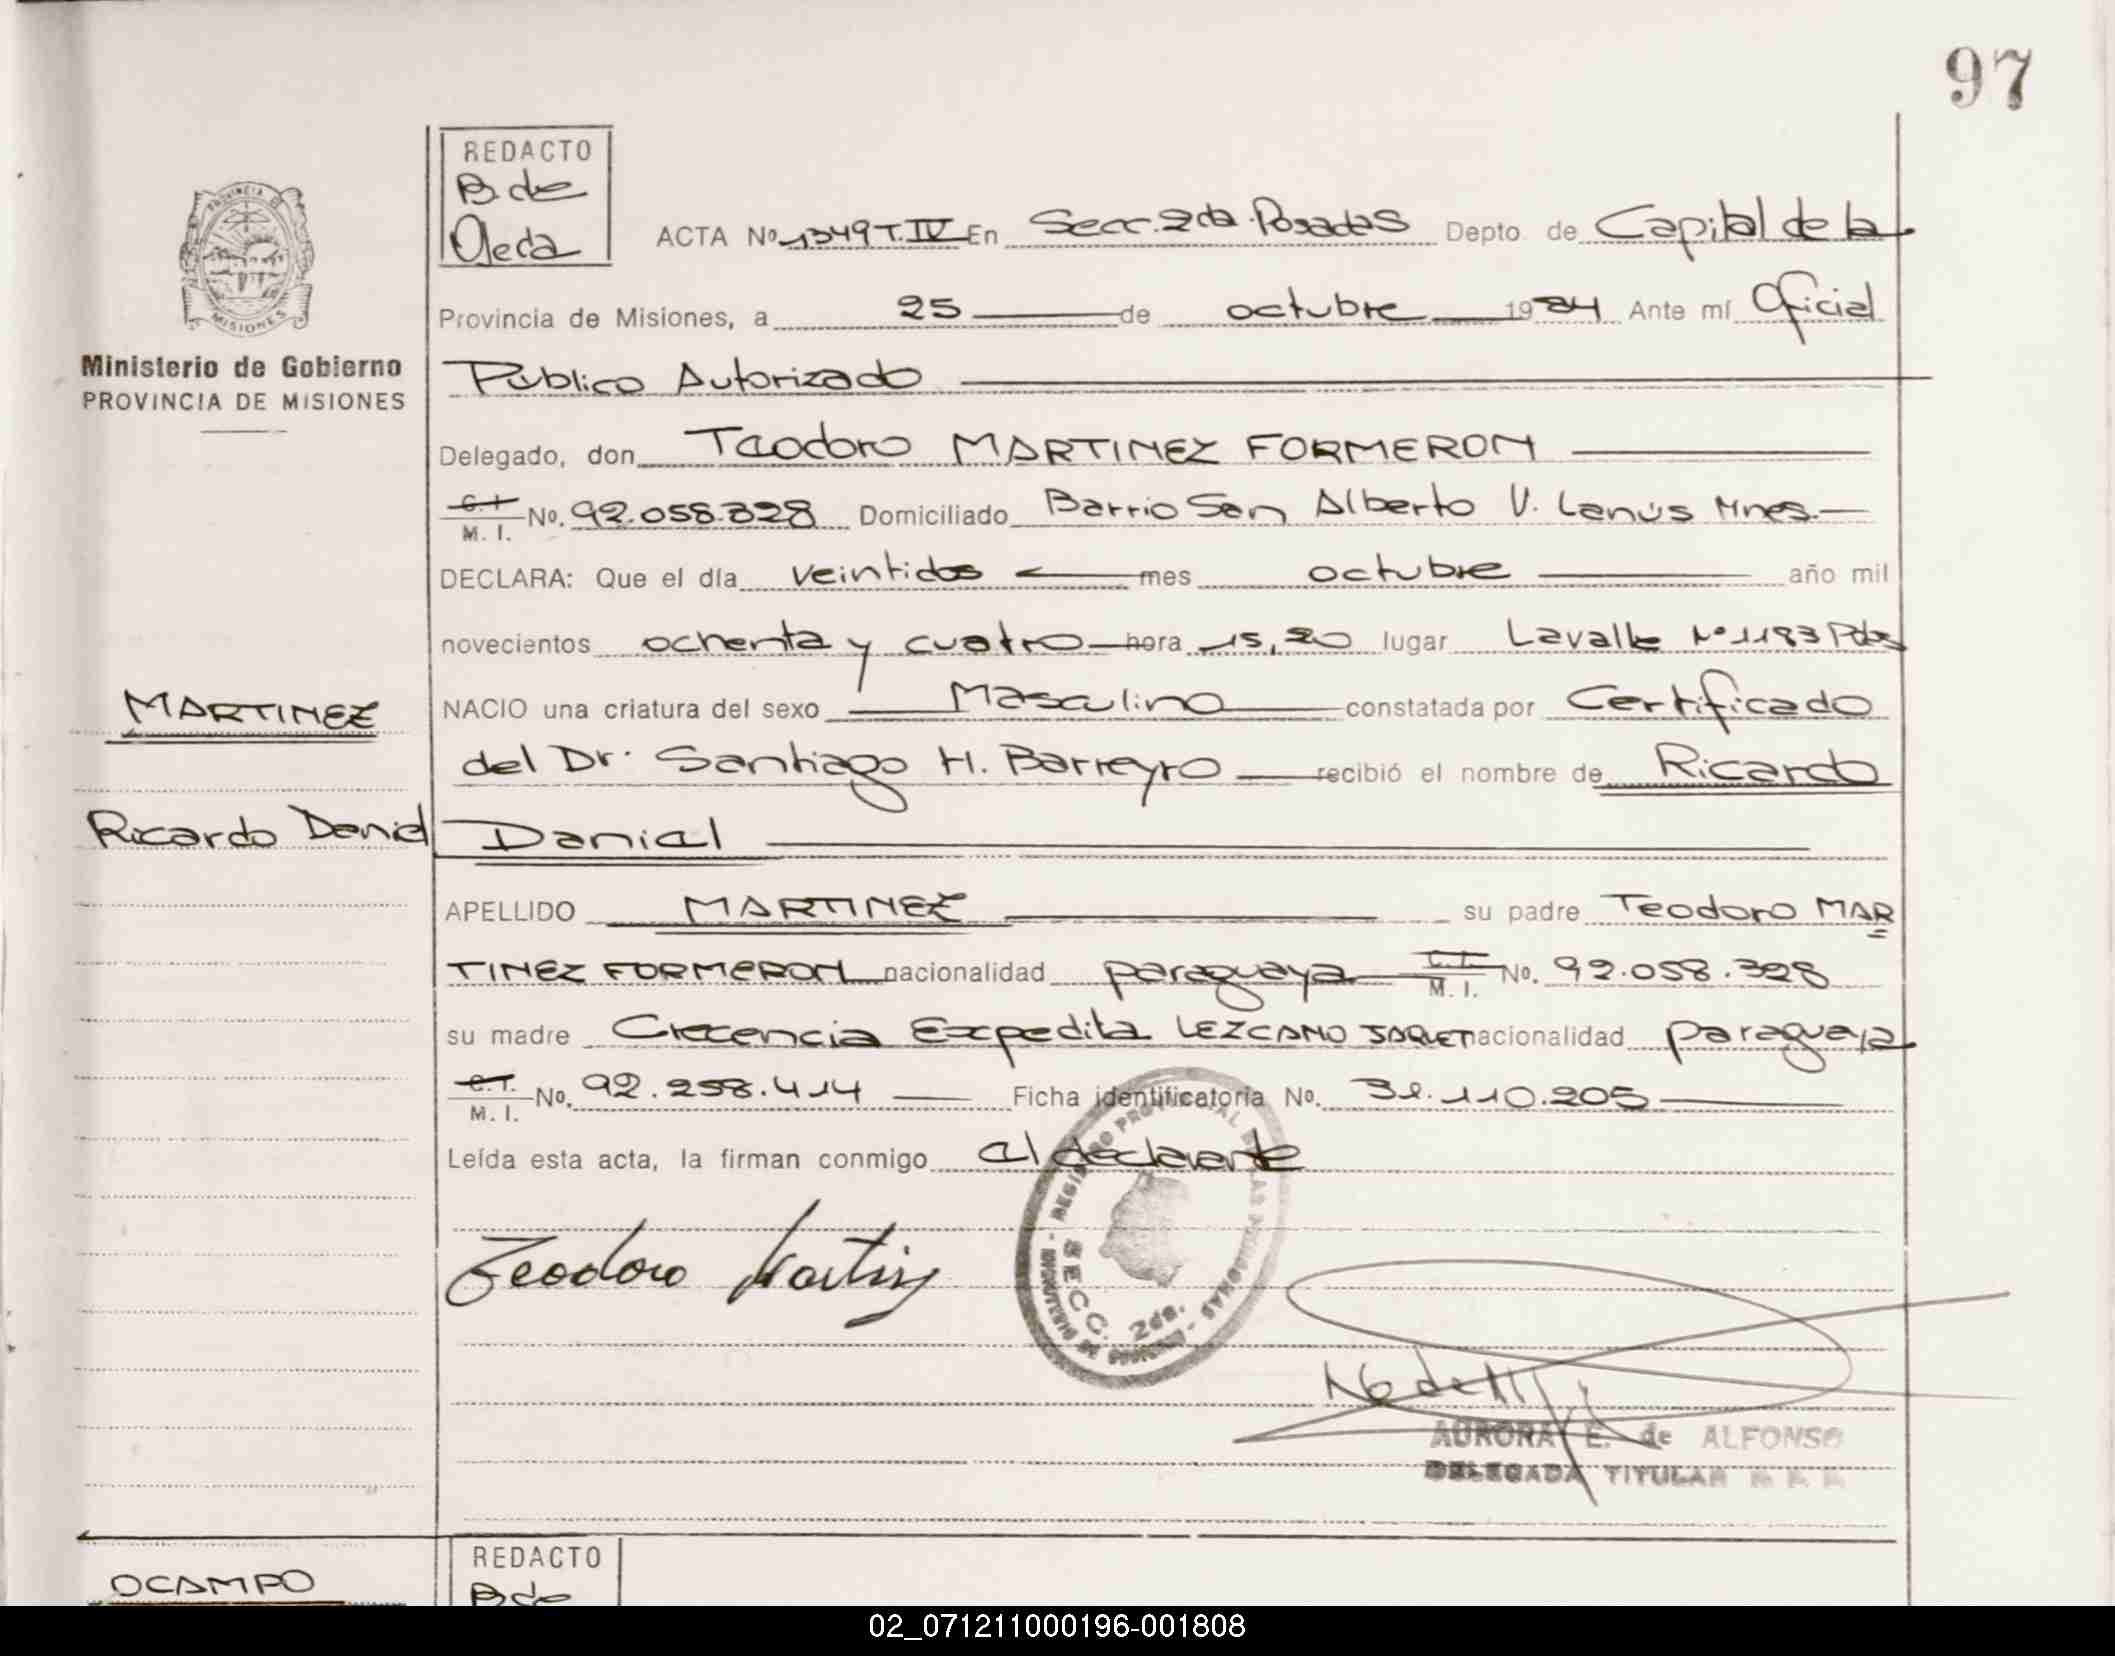 97
REDACTO
B. de
Ojeda
ACTA Nº 1349 T. IV En Secc. 2da. Posadas Depto. de Capital de la
Provincia de Misiones, a 25 de octubre 1984 Ante mí Oficial
PROVINCIA
MISIONES
Ministerio de Gobierno
PROVINCIA DE MISIONES
Público Autorizado
Delegado, don Teodoro MARTINEZ FORMERON
C. I.
M. I. No. 92.058.328 Domiciliado Barrio San Alberto V. Lanús Mnes.
DECLARA: Que el día veintidos mes octubre año mil
novecientos ochenta y cuatro hora 15,20 lugar Lavalle Nº 1193 Pdas
MARTINEZ
NACIO una criatura del sexo Masculino constatada por Certificado
del Dr. Santiago H. Barreyro recibió el nombre de Ricardo
Ricardo Daniel
Daniel
APELLIDO MARTINEZ su padre Teodoro MAR
TINEZ FORMERON nacionalidad paraguaya C. I. M. I. No. 92.058.328
su madre Crecencia Expedita LEZCANO JAQUET nacionalidad paraguaya
C. I.
M. I. No. 92.258.414 Ficha identificatoria No. 31.110.205
Leída esta acta, la firman conmigo el declarante
REGISTRO PROVINCIAL DE LAS PERSONAS
SECC. 2da.
Teodoro Martinez
AURORA E. de ALFONSO
DELEGADA TITULAR
OCAMPO
REDACTO
B. de
02_071211000196-001808